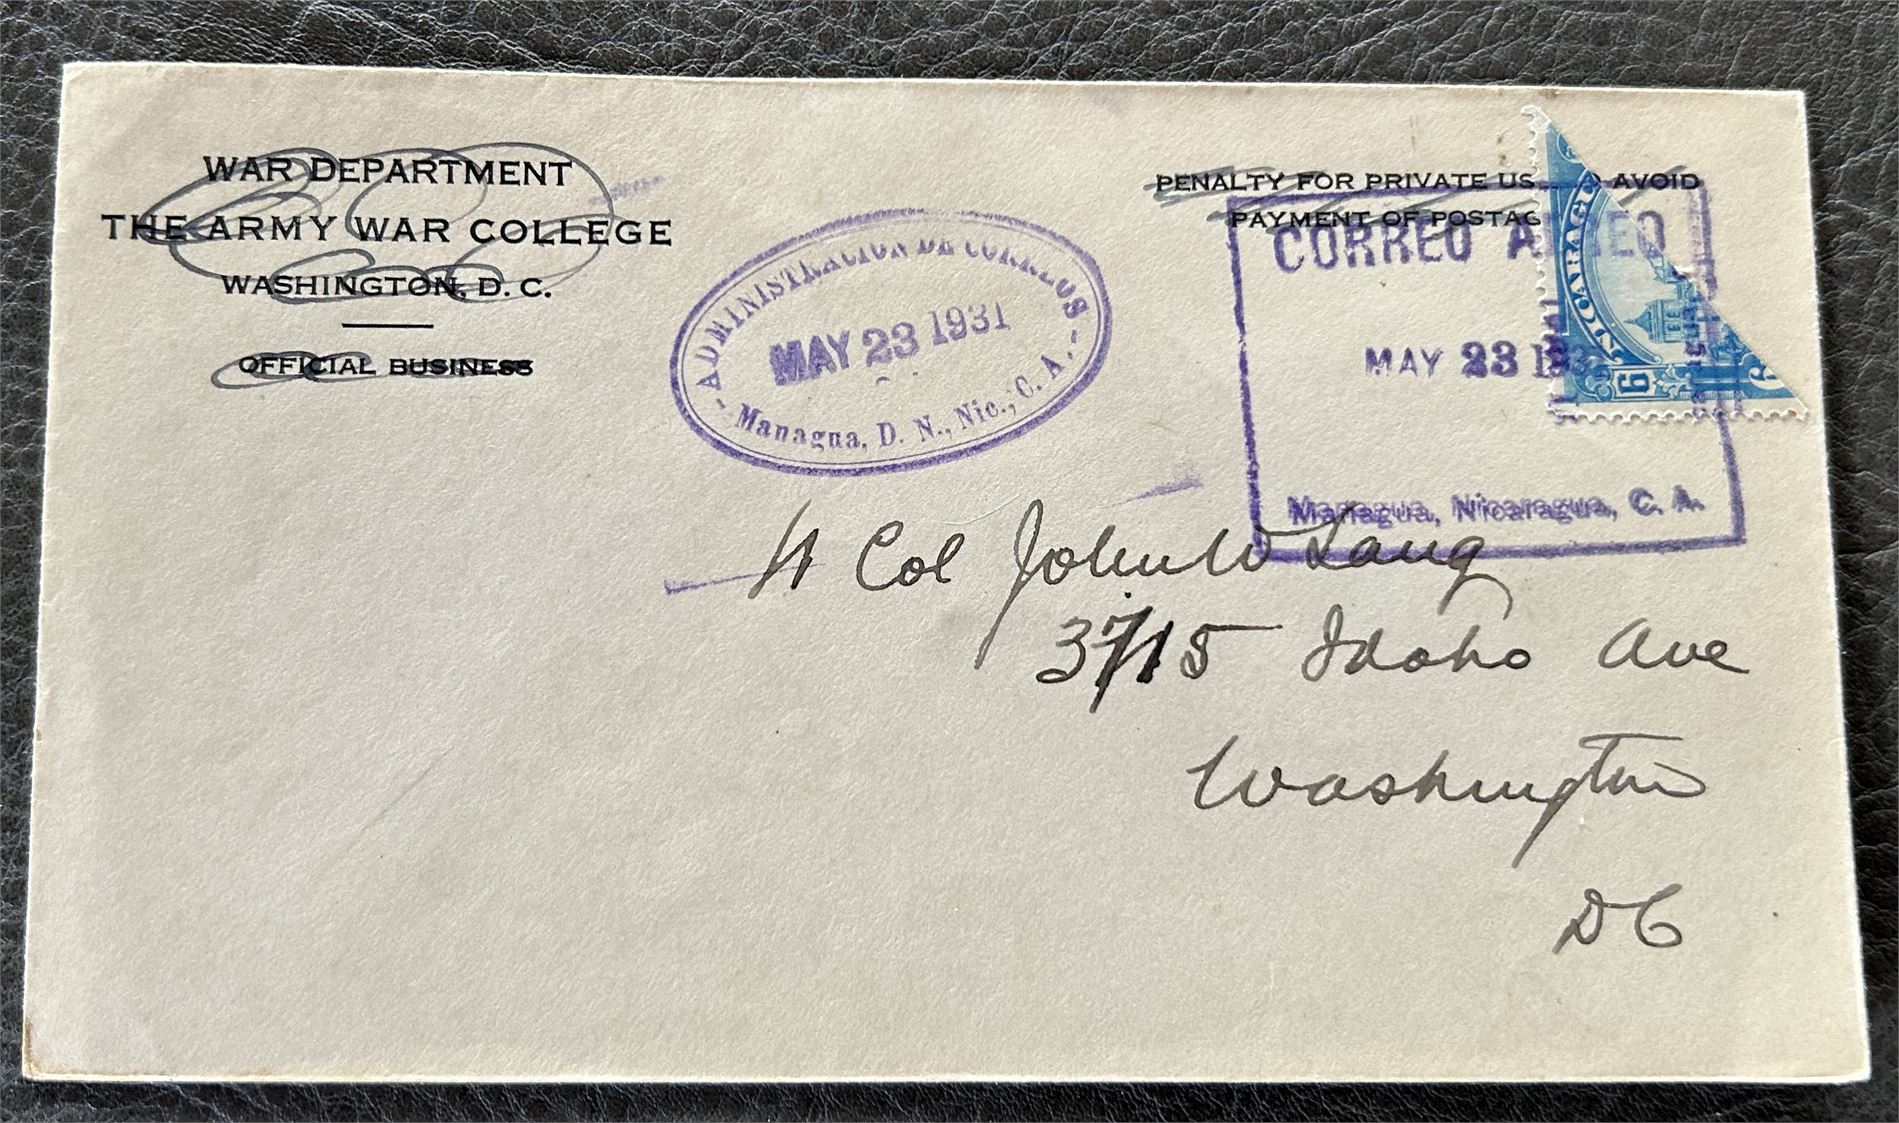 WAR DEPARTMENT
THE ARMY WAR COLLEGE
WASHINGTON, D. C.
OFFICIAL BUSINESS
PENALTY FOR PRIVATE US AVOID
PAYMENT OF POSTAG
ADMINISTRACION DE CORREOS
MAY 23 1931
Managua, D. N., Nic., C. A.
CORREO AEREO
MAY 23 1931
Managua, Nicaragua, C. A.
NICARAGUA
6 6
Lt Col John W Lang
3715 Idaho Ave
Washington
DC